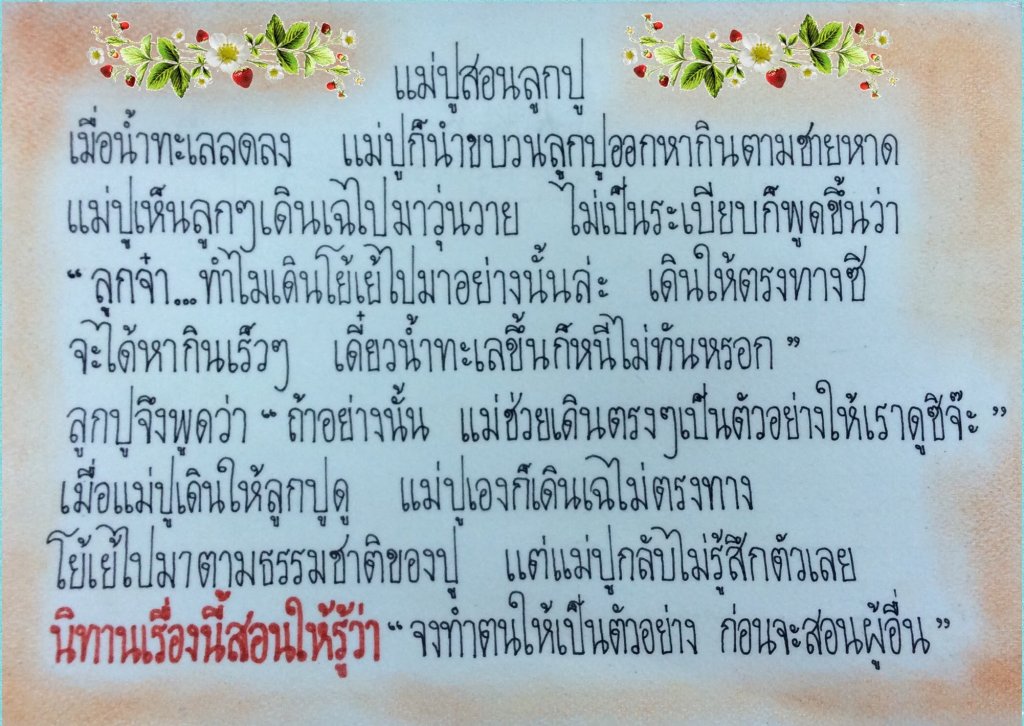 แม่ปูสอนลูกปู
เมื่อน้ำทะเลลดลง แม่ปูก็นำขบวนลูกปูออกหากินตามชายหาด
แม่ปูเห็นลูกๆเดินเฉไปมาวุ่นวาย ไม่เป็นระเบียบก็พูดขึ้นว่า
“ลูกจ๋า...ทำไมเดินโย้เย้ไปมาอย่างนั้นล่ะ เดินให้ตรงทางซี
จะได้หากินเร็วๆ เดี๋ยวน้ำทะเลขึ้นก็หนีไม่ทันหรอก”
ลูกปูจึงพูดว่า “ถ้าอย่างนั้น แม่ช่วยเดินตรงๆเป็นตัวอย่างให้เราดูซีจ๊ะ”
เมื่อแม่ปูเดินให้ลูกปูดู แม่ปูเองก็เดินเฉไม่ตรงทาง
โย้เย้ไปมาตามธรรมชาติของปู แต่แม่ปูกลับไม่รู้สึกตัวเลย
นิทานเรื่องนี้สอนให้รู้ว่า “จงทำตนให้เป็นตัวอย่าง ก่อนจะสอนผู้อื่น”